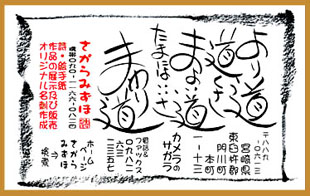 より道
道くさ
まよい道
たまほい…さ
まわり道
〒八八九
〇六一三
宮崎県
東臼杵郡
門川町
本町
一-十三
カメラの
サガラ
電話&
ファックス
〇九八二
六三
一三五七
ホーム
ページ
さがら
みずほ
検索
さがらみずほ
携帯〇九〇-二一六六-〇八二〇
詩・絵手紙
作品の展示及び販売
オリジナル名刺作成